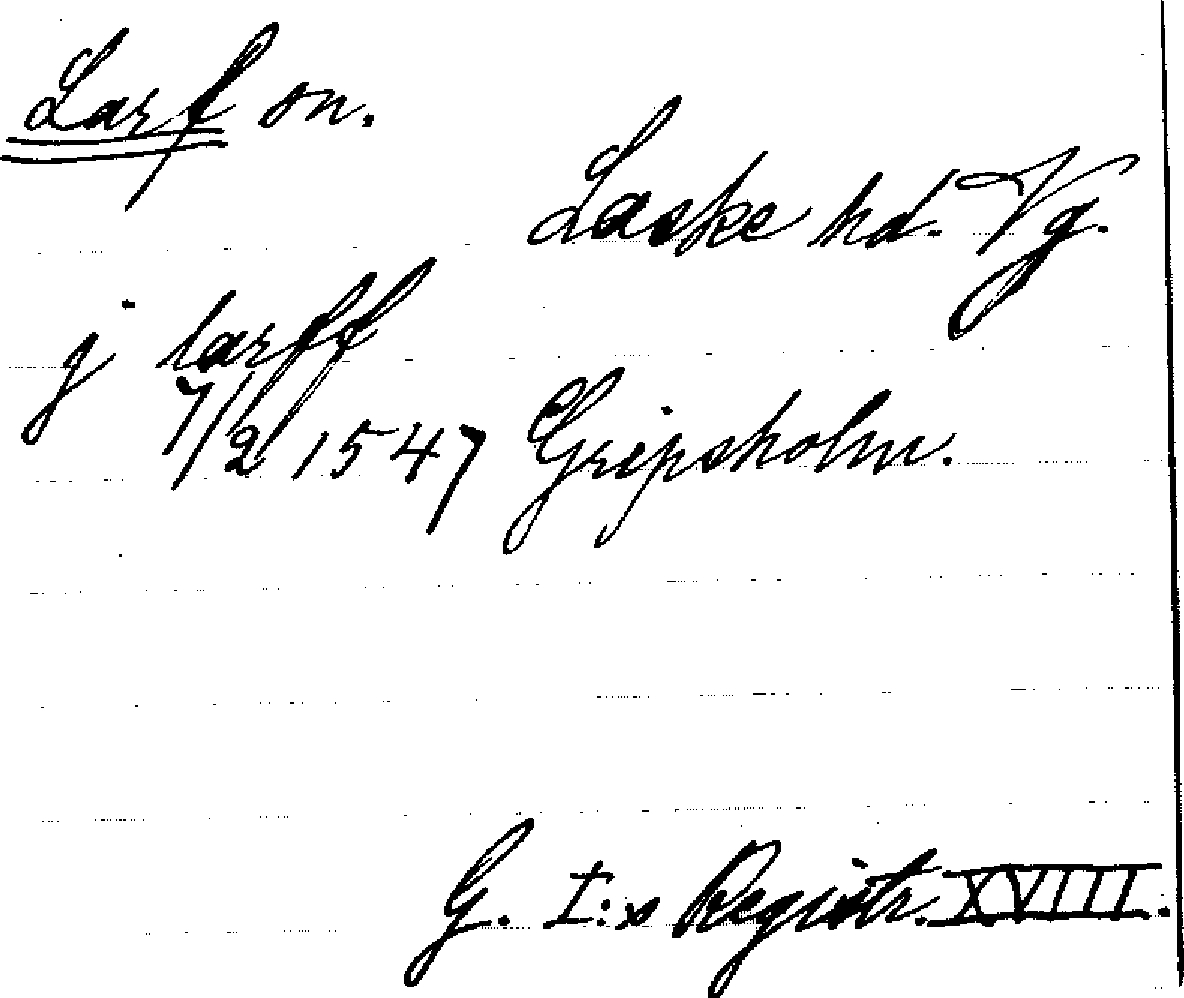 Larf sn.
Laske hd. Vg.
j larff
7/2 1547 Gripsholm.
G. I:s Registr. XVIII.